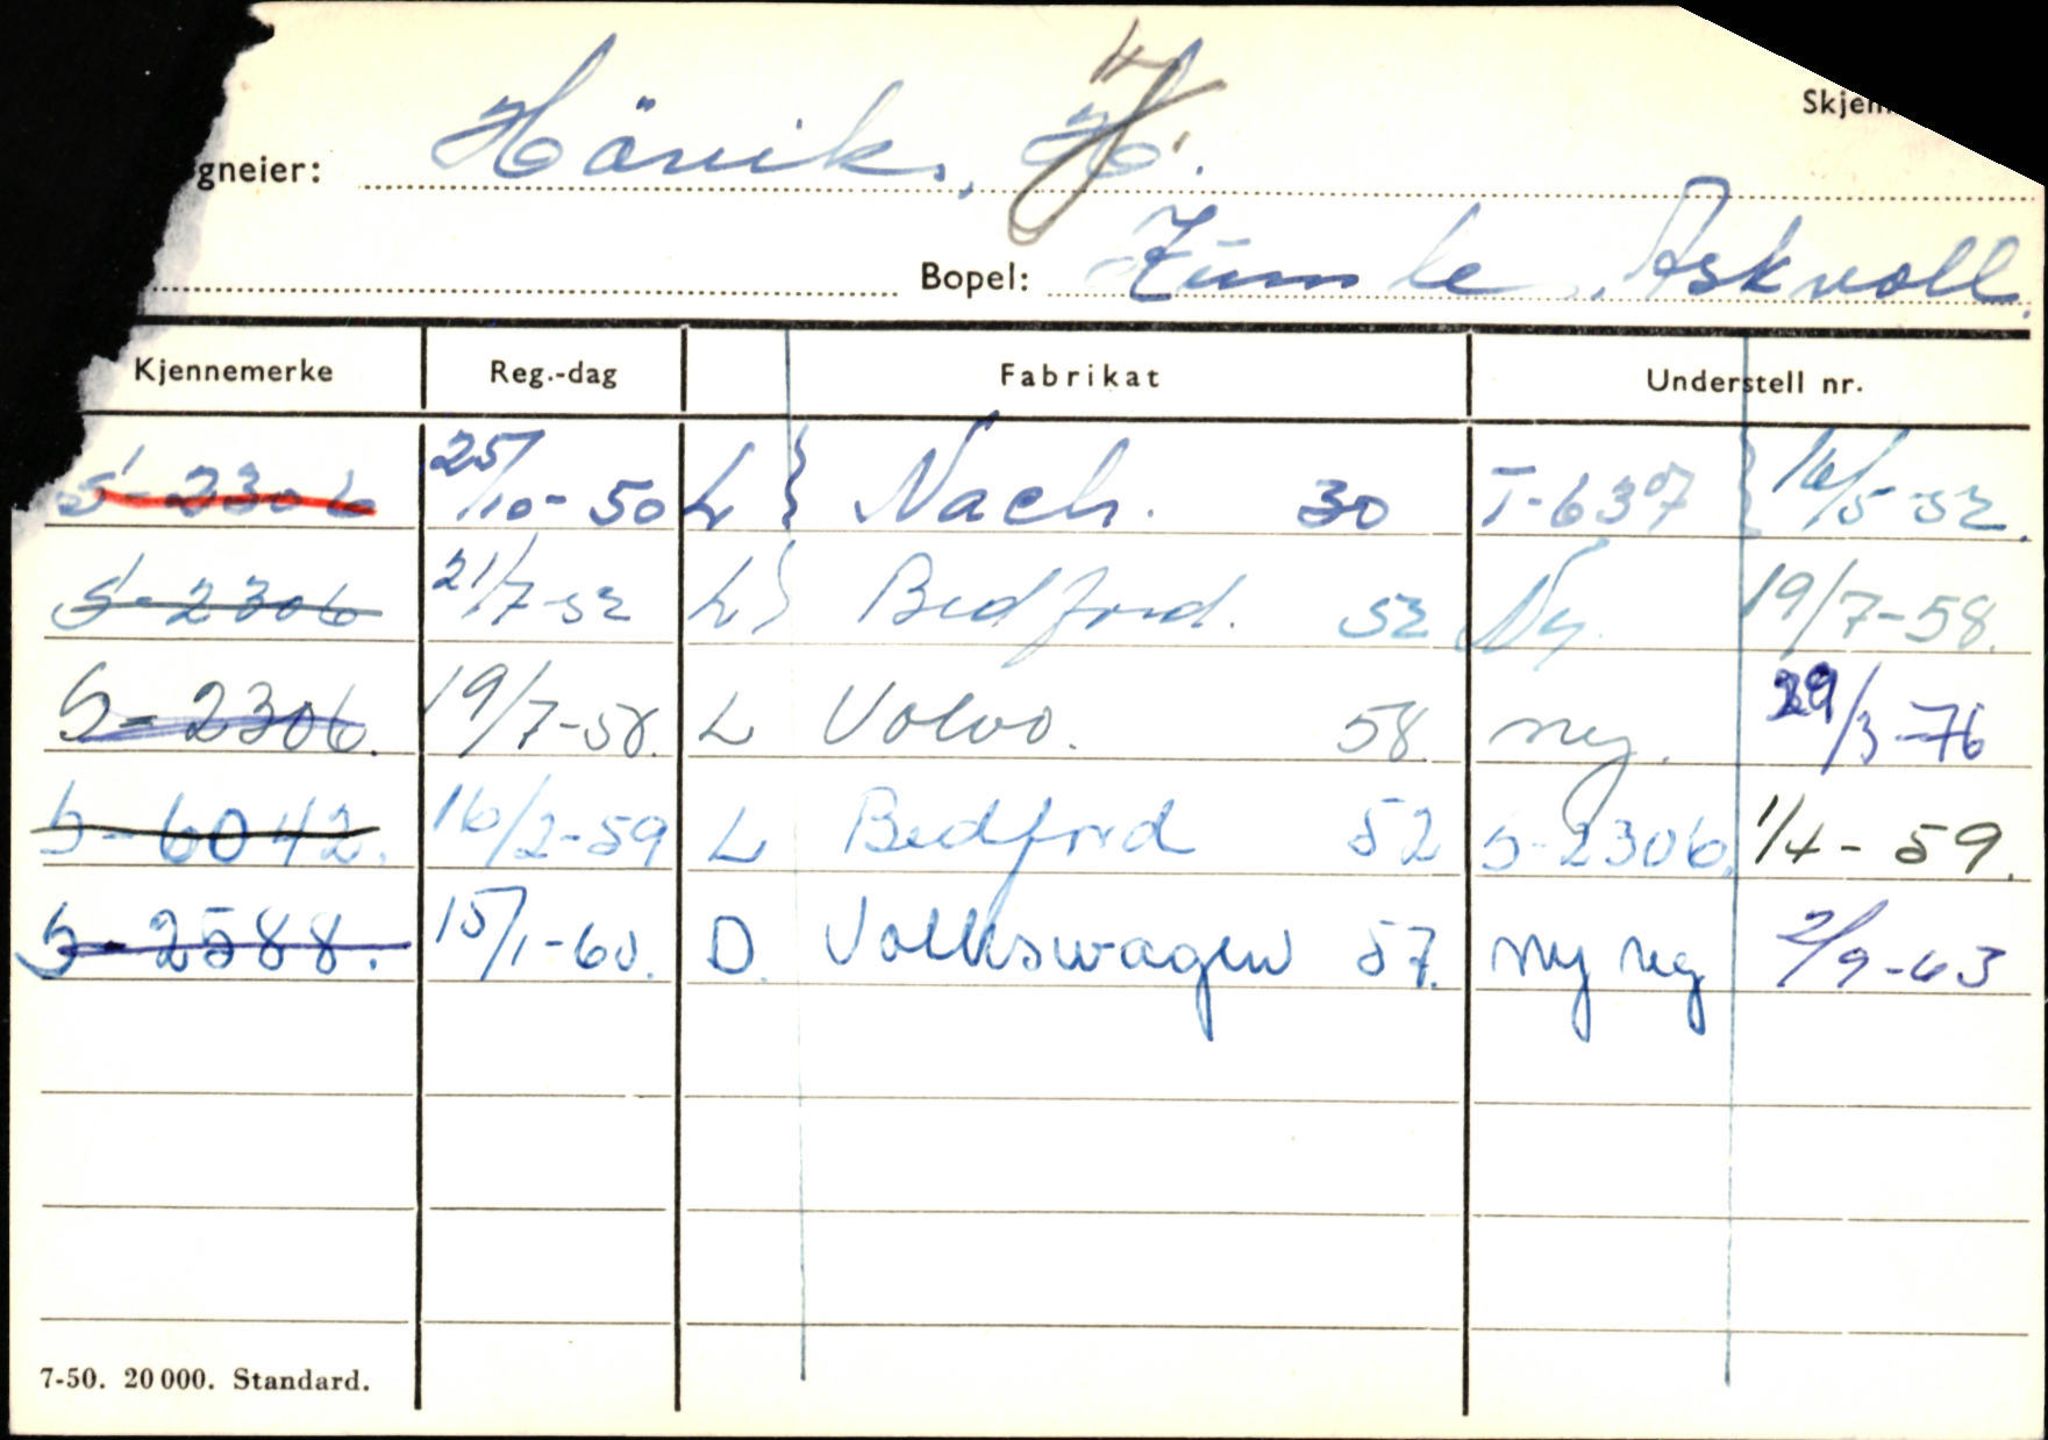 Skjem
gneier: Hövik, H.
Bopel: Askvoll.
Kjennemerke Reg.-dag Fabrikat Understell nr.
S-2306 25/10-50 L } Nach. 30 T-6307 } 16/5-52.
S-2306 21/7-52 L } Bedford. 52 Ny. 19/7-58.
S-2306. 19/7-58. L Volvo. 58. ny. 29/3-76
S-6042. 16/2-59 L Bedford 52 S-2306. 1/4-59.
S-2588. 15/1-60. D. Volkswagen 57. ny reg 2/9-63
7-50. 20 000. Standard.